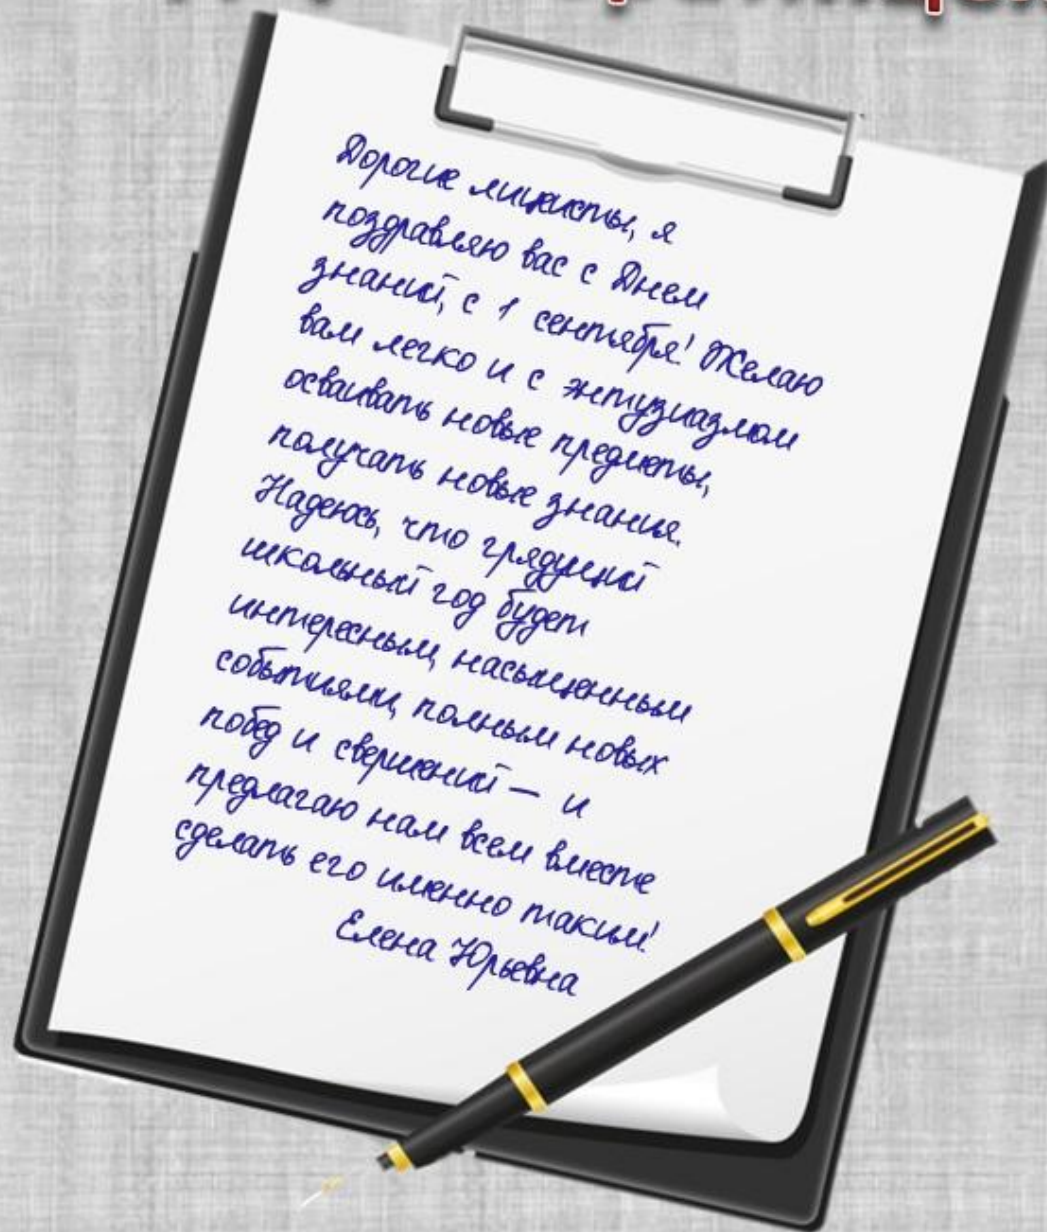 Дорогие лицеисты, я
поздравляю вас с Днем
знаний, с 1 сентября! Желаю
вам легко и с энтузиазмом
осваивать новые предметы,
получать новые знания.
Надеюсь, что грядущий
школьный год будет
интересным, насыщенным
событиями, полным новых
побед и свершений — и
предлагаю нам всем вместе
сделать его именно таким!
Елена Юрьевна